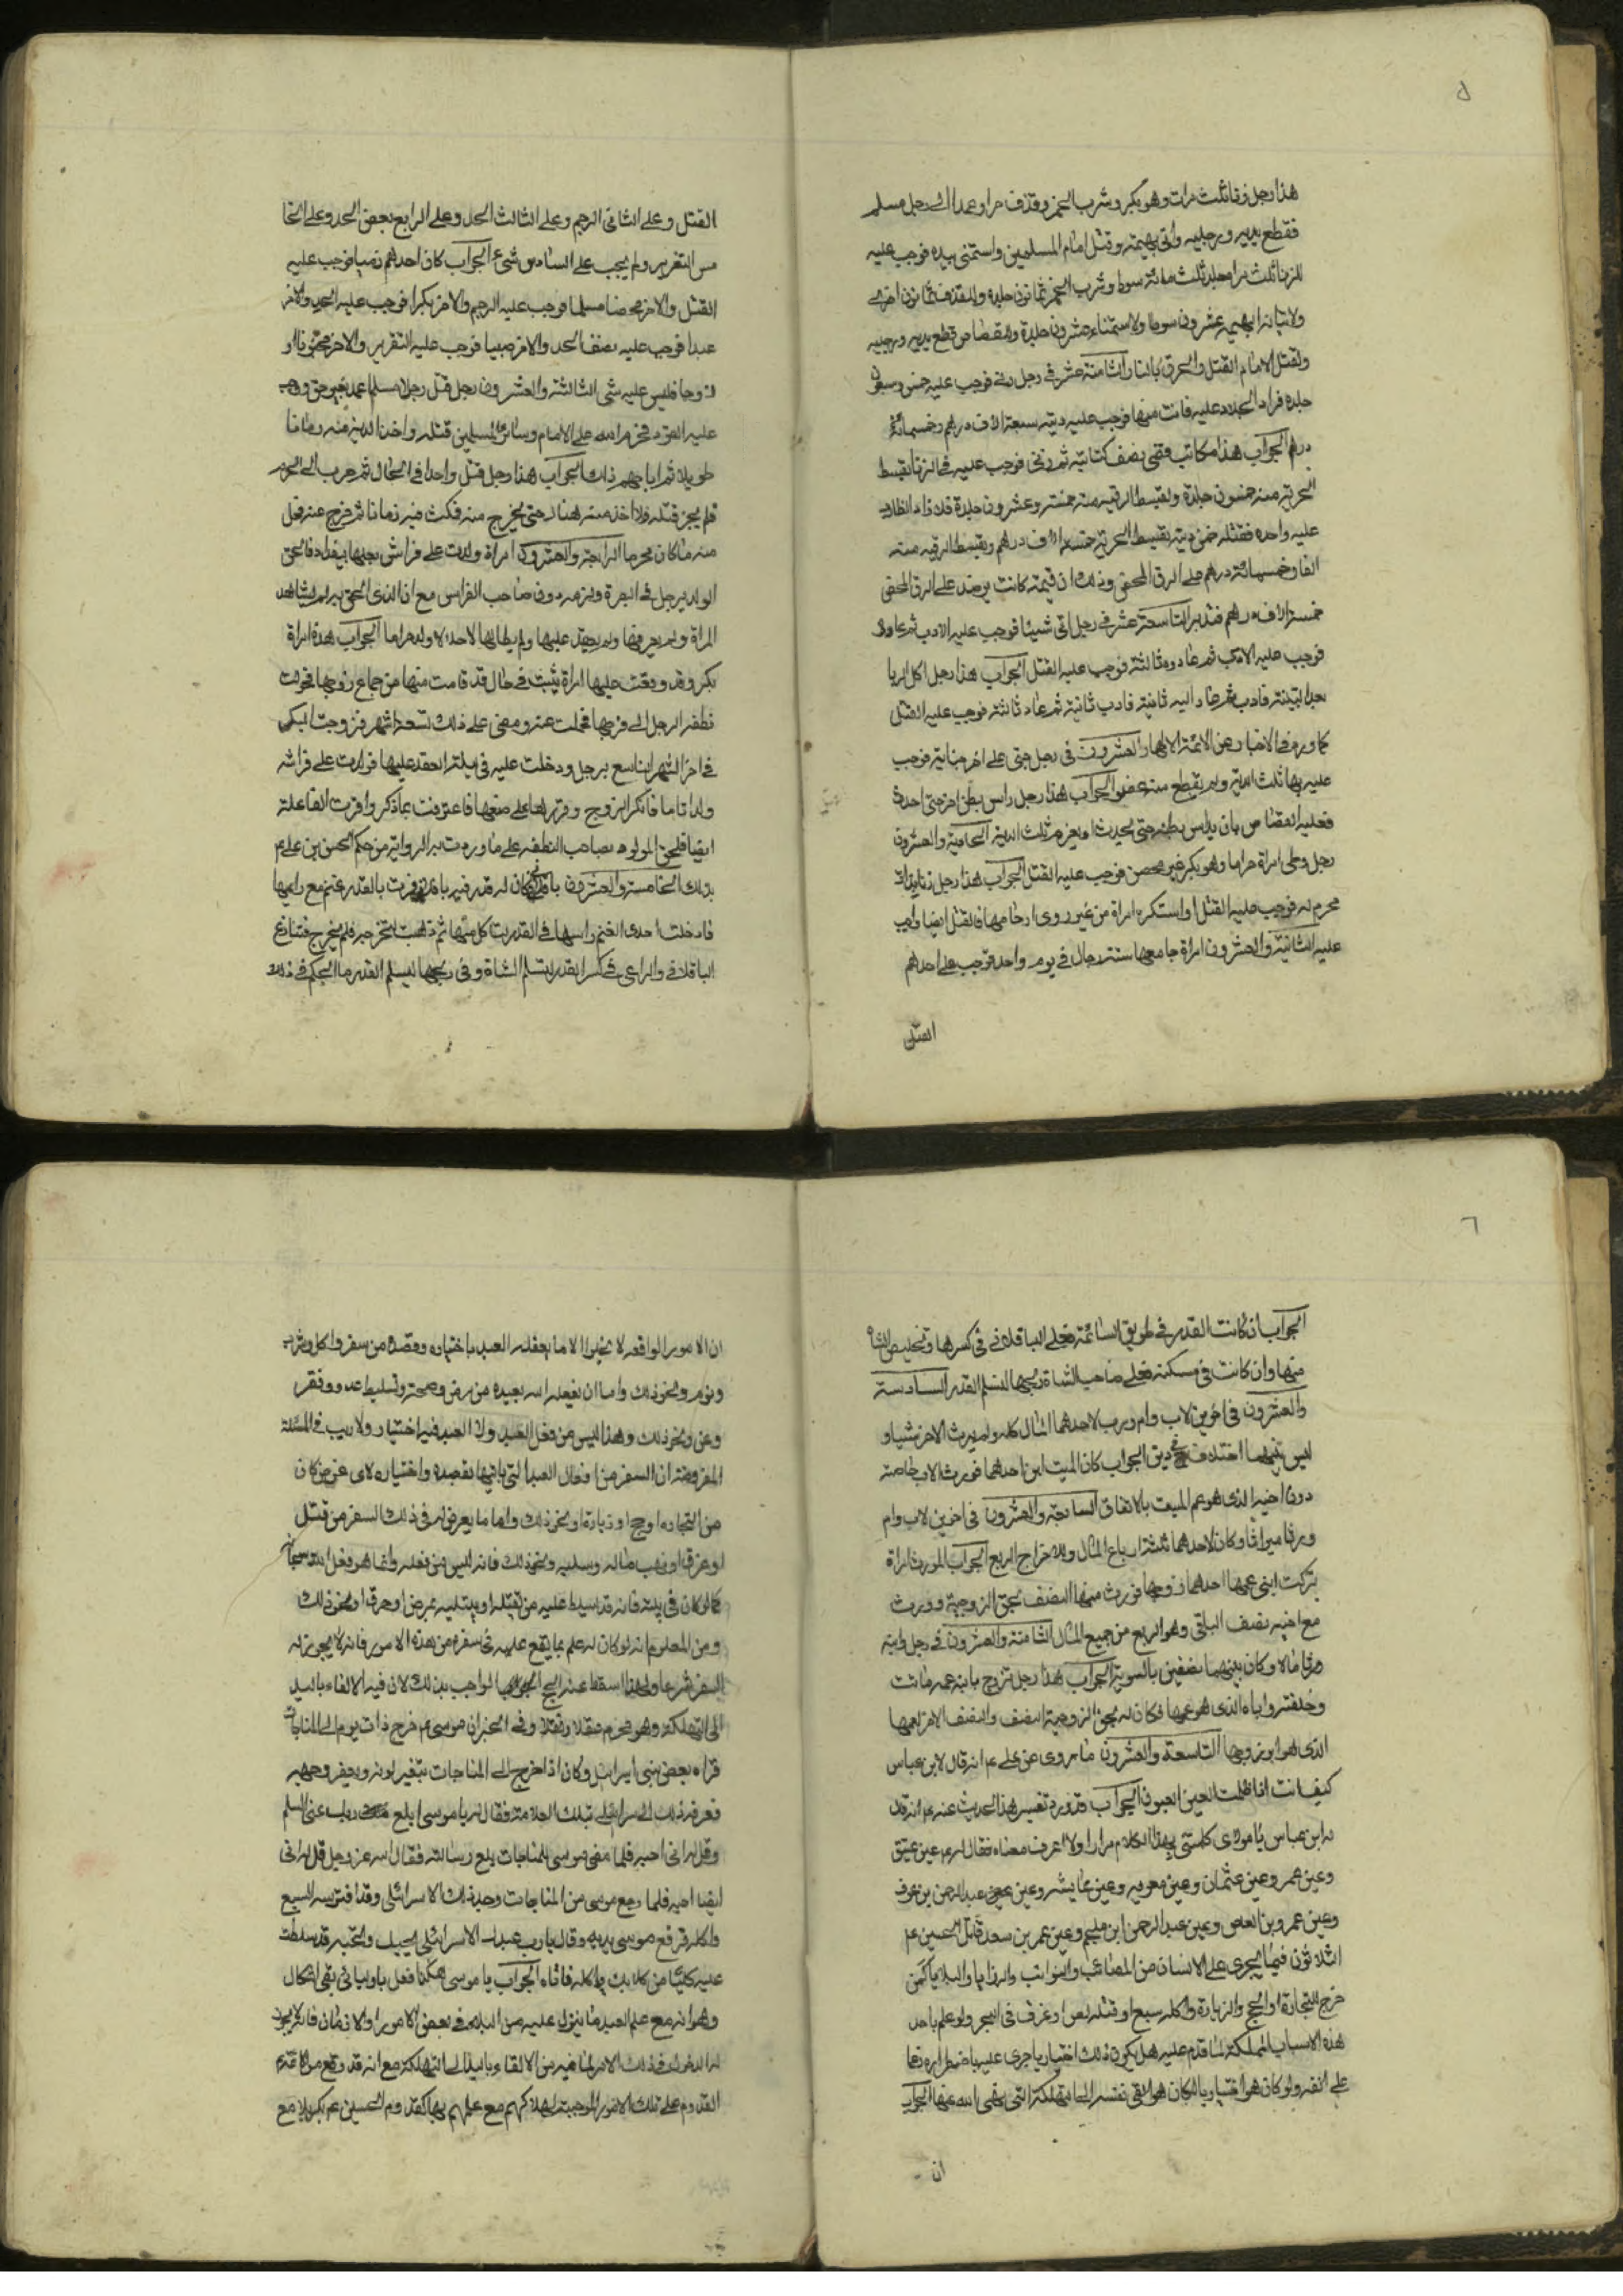 ٥
هذا رجل زنا ثلث مرات وهو بكر وشرب الخمر وقذف حرا وعمد الى رجل مسلم
فقطع يديه ورجليه واتى بهيمة وقتل امام المسلمين واستمنى بيده فوجب عليه
للزنا ثلث مرا جلد ثلث مائة سوط وشرب الخمر ثمانون جلدة وللقذف ثمانون اخرى
ولاتيانه البهيمة عشرون سوطا ولاستمناء عشرون جلدة وللقصاص قطع يديه ورجليه
ولقتل الامام القتل والحرق بالنار الثامنة عشر في رجل زنى فوجب عليه خمس وسبعون
جلدة فزاد الجلاد عليه فمات منها فوجب عليه ديته سبعة الاف درهم وخمسمائة
درهم الجواب هذا مكاتب فقي نصف كتابته ثم زنى فوجب عليه في الزنا بقسط
الحرية منه خمسون جلدة وبقسط الرقية منه خمسة وعشرون جلدة فلما زاد الجلاد
عليه واحدة فقتله ضمن ديته بقسط الحرية خمسة الاف درهم وبقسط الرقية منه
الفا وخمسمائة درهم على الرق المحض وذلك ان قيمته كانت يومئذ على الرق المحض
خمسة الاف درهم فتدبر التاسعة عشر في رجل اتى شيئا فوجب عليه الادب ثم عاود
فوجب عليه الادب ثم عاوده ثالثة فوجب عليه القتل الجواب هذا رجل اكل الربا
بعد البينة فادب ثم عاد اليه ثانية فادب ثانية ثم عاد ثالثة فوجب عليه القتل
كما ورد في الاخبار عن الائمة الاطهار العشرون في رجل جنى على اخر جناية فوجب
عليه بها ثلث الدية ولم يقطع منه عضو الجواب هذا رجل داس بطن اخر حتى احدث
فعليه القصاص بان يداس بطنه حتى يحدث او يغرم ثلث الدية الحادية والعشرون
رجل وطى امراة حراما وهو بكر غير محصن فوجب عليه القتل الجواب هذا رجل زنا بذات
محرم له فوجب عليه القتل او استكره امراة من غير ذوى ارحامها فالقتل ايضا واجب
عليه الثانية والعشرون امراة جامعها ستة رجال في يوم واحد فوجب على احدهم
القتل
القتل وعلى الثاني الرجم وعلى الثالث الحد وعلى الرابع بعض الحد وعلى الخا
مس التعزير ولم يجب على السادس شيء الجواب كان احدهم ذميا فوجب عليه
القتل والاخر محصنا مسلما فوجب عليه الرجم والاخر بكرا فوجب عليه الحد والاخر
عبدا فوجب عليه نصف الحد والاخر صبيا فوجب عليه التعزير والاخر مجنونا او
زوجا فليس عليه شى الثالثة والعشرون رجل قتل رجلا مسلما عمدا بغير حق ووجب
عليه القود فحرم الله على الامام وسائر المسلمين قتله واخذ الدية منه زمانا
طويلا ثم اباحهم ذلك الجواب هذا رجل قتل واحدا في الحال ثم هرب الى الحرم
فلم يجز قتله ولا اخذ منه هناك حتى يخرج منه فمكث فيه زمانا ثم خرج عنه فحل
منه ما كان محرما الرابعة والعشرون امراة ولدت على فراش بعلها ببغداد فالحق
الولد برجل في البصرة ولزمه دون صاحب الفراش مع ان الذي الحق به لم يشاهد
المراة ولم يعرفها ولم يعقد عليها ولم يطائها لا حلالا ولا حراما الجواب هذه امراة
بكر وقد وقعت عليها امراة ثيبت في حال قد قامت منها من جماع زوجها فحولت
نطفة الرجل الى فرجها فحملت عنه ومضى على ذلك تسعة اشهر فتزوجت البكر
في اخر الشهر التاسع برجل ودخلت عليه في ليلة العقد عليها فولدت على فراشه
ولدا تاما فانكر الزوج وقررها على صنعها فاعترفت بما ذكر واقرت الفاعلة
ايضا فلحق المولود بصاحب النطفة على ما وردت به الرواية من حكم الحسن بن علي ع
بذلك الخامسة والعشرون باقلاني كان له قدر فيه باقلا فمرت بالقدر غنم مع راعيها
فادخلت احدى الغنم راسها في القدر تاكل منها ثم ذهبت لتخرجه فلم يخرج فتنازع
الباقلاني والراعي في كسر القدر لتسلم الشاة وفي ذبحها ليسلم القدر ما الحكم في ذلك
٦
الجواب ان كانت القدر في طريق السائمة فعلى الباقلاني في كسرها وتخليص الشاة
منها وان كانت في مسكنه فعلى صاحب الشاة ذبحها لتسلم القدر السادسة
والعشرون في اخوين لاب وام ورث احدهما المال كله ولم يرث الاخر شيئا و
ليس بينهما اختلاف في دين الجواب كان الميت ابن احدهما فورث الاب خاصة
دون اخيه الذي هو عم الميت بالاتفاق السابعة والعشرون في اخوين لاب وام
ورثا ميراثا وكان لاحدهما ثلثة ارباع المال وللاخر الربع الجواب المورث امراة
تركت ابنى عمها احدهما زوجها فورث منها النصف بحق الزوجية وورث
مع اخيه نصف الباقي وهو الربع من جميع المال الثامنة والعشرون في رجل وابنه
ورثا مالا وكان بينهما نصفين بالسوية الجواب هذا رجل تزوج بابنة عمه فماتت
وخلفته واباه الذي هو عمها فكان له بحق الزوجية النصف والنصف الاخر لعمها
الذي هو ابو زوجها التاسعة والعشرون ما روى عن علي ع انه قال لابن عباس
كيف انت اذا ظلمت العين العيون الجواب قد ورد تفسير هذا الحديث عنه ع انه قال
له ابن عباس يا مولاى كلمتنى بهذا الكلام مرارا ولا اعرف معناه فقال له ع عين عتيق
وعين عمر وعين عثمان وعين معويه وعين عايشه وعين عبد الرحمن بن عوف
وعين عمرو بن العاص وعين عبد الرحمن ابن ملجم وعين عمر بن سعد قاتل الحسين ع
الثلاثون فيما يجرى على الانسان من المصائب والنوائب والرزايا والبلايا كمن
خرج للتجارة او الحج والزيارة واكله سبع او قتله لص او غرق في البحر ولو علم باحد
هذه الاسباب المهلكة لما قدم عليه هل يكون ذلك اختيار يا جرى عليه باضطراره
على انفه ولو كان هو اختياريا لكان هو القى نفسه الى التهلكة التى نهى الله عنها الجواب
ان
ان الامور الواقعة لا يخلوا اما يفعله العبد باختياره وقصده من سفر واكل وشرب
ونوم ونحو ذلك واما ان يفعله الله بعبده من مرض وصحة وتسليط عدو وفقر
وغنى ونحو ذلك وهذا ليس من فعل العبد ولا العبد فيه اختيار ولا ريب في المسئلة
المفروضة ان السفر من افعال العبد التى ياتيها بقصده واختياره لاى غرض كان
من التجارة او حج او زيارة او نحو ذلك واما ما يعرض له في ذلك السفر من قتل
او غرق او نهب ماله وسلبه ونحو ذلك فانه ليس من فعله وانما هو فعل الله سبحانه
كما لو كان في بيته فانه قد يسلط عليه من يقتله او يبتليه بمرض او حرق او نحو ذلك
ومن المعلوم انه لو كان له علم بما يقع عليه في سفره من هذه الامور فانه لا يجوز له
السفر شرعا ولهذا اسقط عنه الحج الواجب بذلك لان فيه الالقاء باليد
الى التهلكة وهو محرم عقلا ونقلا وفي الخبر ان موسى ع خرج ذات يوم الى المناجات
فراه بعض بنى اسرائيل وكان اذا خرج الى المناجات تتغير لونه ويصفر وجهه
فعرفه ذلك الاسرائيلى بتلك العلامة فقال له يا موسى ابلغ ربك عنى السلام
وقل له انى احبه فلما مضى موسى للمناجات بلغ رسالته فقال الله عز وجل قل له انى
ايضا احبه فلما رجع موسى من المناجات وجد ذلك الاسرائلى وقد افترسه السبع
واكله فرفع موسى يديه وقال يا رب عبدك الاسرائلى يحبك وتحبه قد سلطت
عليه كلبا من كلابك واكله فاتاه الجواب يا موسى هكذا افعل باوليائي بقى اشكال
وهو انه مع علم العبد ما ينزل عليه من البلاء في بعض الامور او الازمان فانه لا يجوز
له الدخول في ذلك الامر لما فيه من الالقاء باليد الى التهلكة مع انه قد وقع من الائمة
القدوم على تلك الامور الموجبة لهلاكهم مع علمهم بها كقدوم الحسين ع بكربلا مع